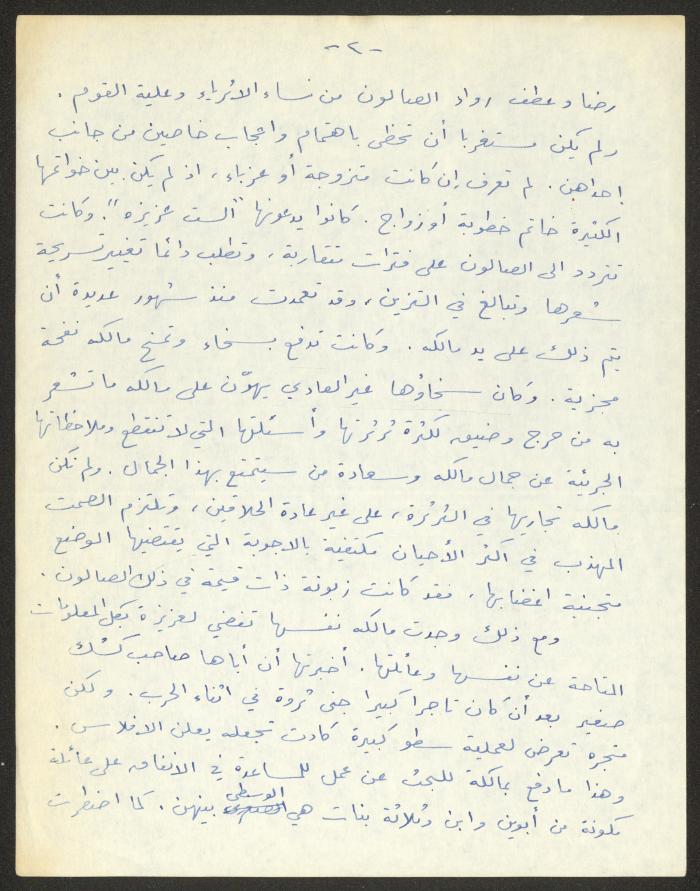 -٢-
رضا وعطف رواد الصالون من نساء الاثرياء وعلية القوم .
ولم يكن مستغربا أن تحظى باهتمام واعجاب خاصين من جانب
احداهن . لم تعرف إن كانت متزوجة أو عزباء ، اذ لم يكن بين خواتمها
الكثيرة خاتم خطوبة أو زواج . كانوا يدعونها "الست عزيزه" . وكانت
تتردد الى الصالون على فترات متقاربة ، وتطلب دائما تغيير تسريحة
شعرها وتبالغ في التزين ، وقد تعمدت منذ شهور عديدة أن
يتم ذلك على يد مالكه . وكانت تدفع بسخاء وتمنح مالكه نفحة
مجزية . وكان سخاؤها غير العادي يهوّن على مالكه ما تشعر
به من حرج وضيق لكثرة ثرثرتها وأسئلتها التي لا تنقطع وملاحظاتها
الجريئة عن جمال مالكه وسعادة من سيتمتع بهذا الجمال . ولم تكن
مالكه تجاريها في الثرثرة ، على غير عادة الحلاقين ، وتلتزم الصمت
المهذب في أكثر الأحيان مكتفية بالاجوبة التي يقتضيها الوضع
متجنبة اغضابها ، فقد كانت زبونة ذات قيمة في ذلك الصالون .
ومع ذلك وجدت مالكه نفسها تفضي لعزيزة بكل المعلومات
المتاحة عن نفسها وعائلتها . أخبرتها أن أباها صاحب كشك
صغير بعد أن كان تاجرا كبيرا جنى ثروة في اثناء الحرب . ولكن
متجره تعرض لعملية سطو كبيرة كادت تجعله يعلن الافلاس .
وهذا ما دفع بمالكة للبحث عن عمل للمساعدة في الانفاق على عائلة
مكونة من أبوين وابن وثلاثة بنات هي الوسطى بينهن . كما اضطرت